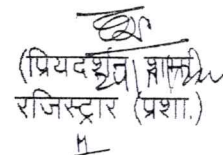 (प्रियदर्शन शास्त्री)
रजिस्ट्रार (प्रशा.)